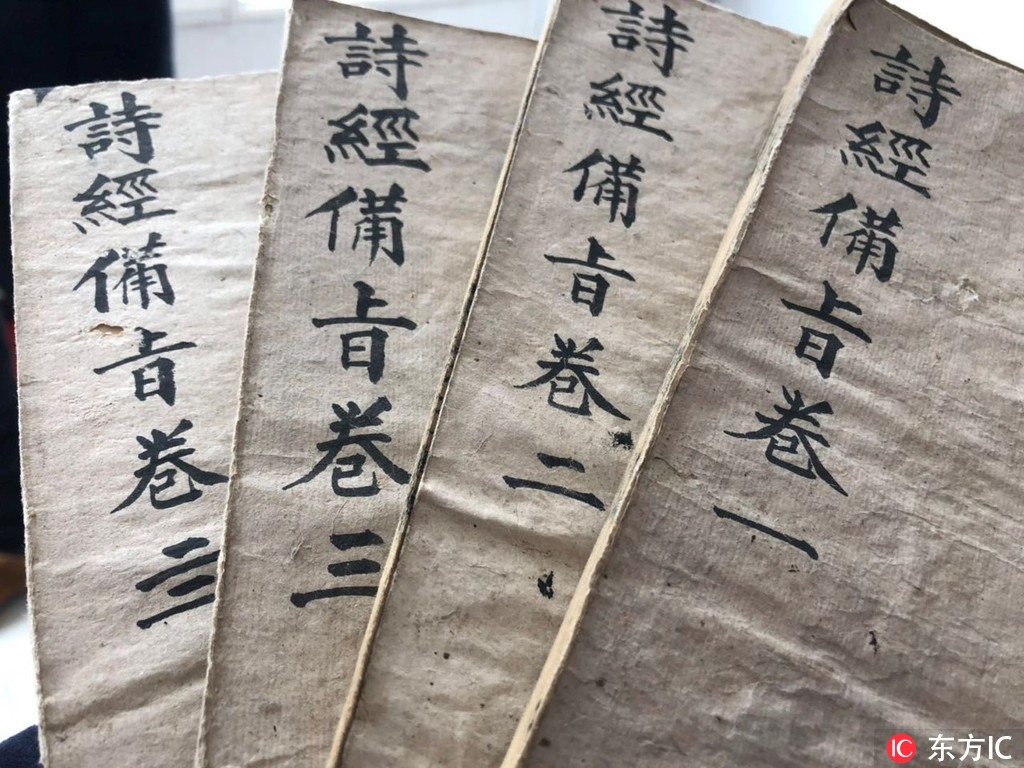 詩經備旨卷一
詩經備旨卷二
詩經備旨卷三
詩經備旨卷亖
IC 东方IC